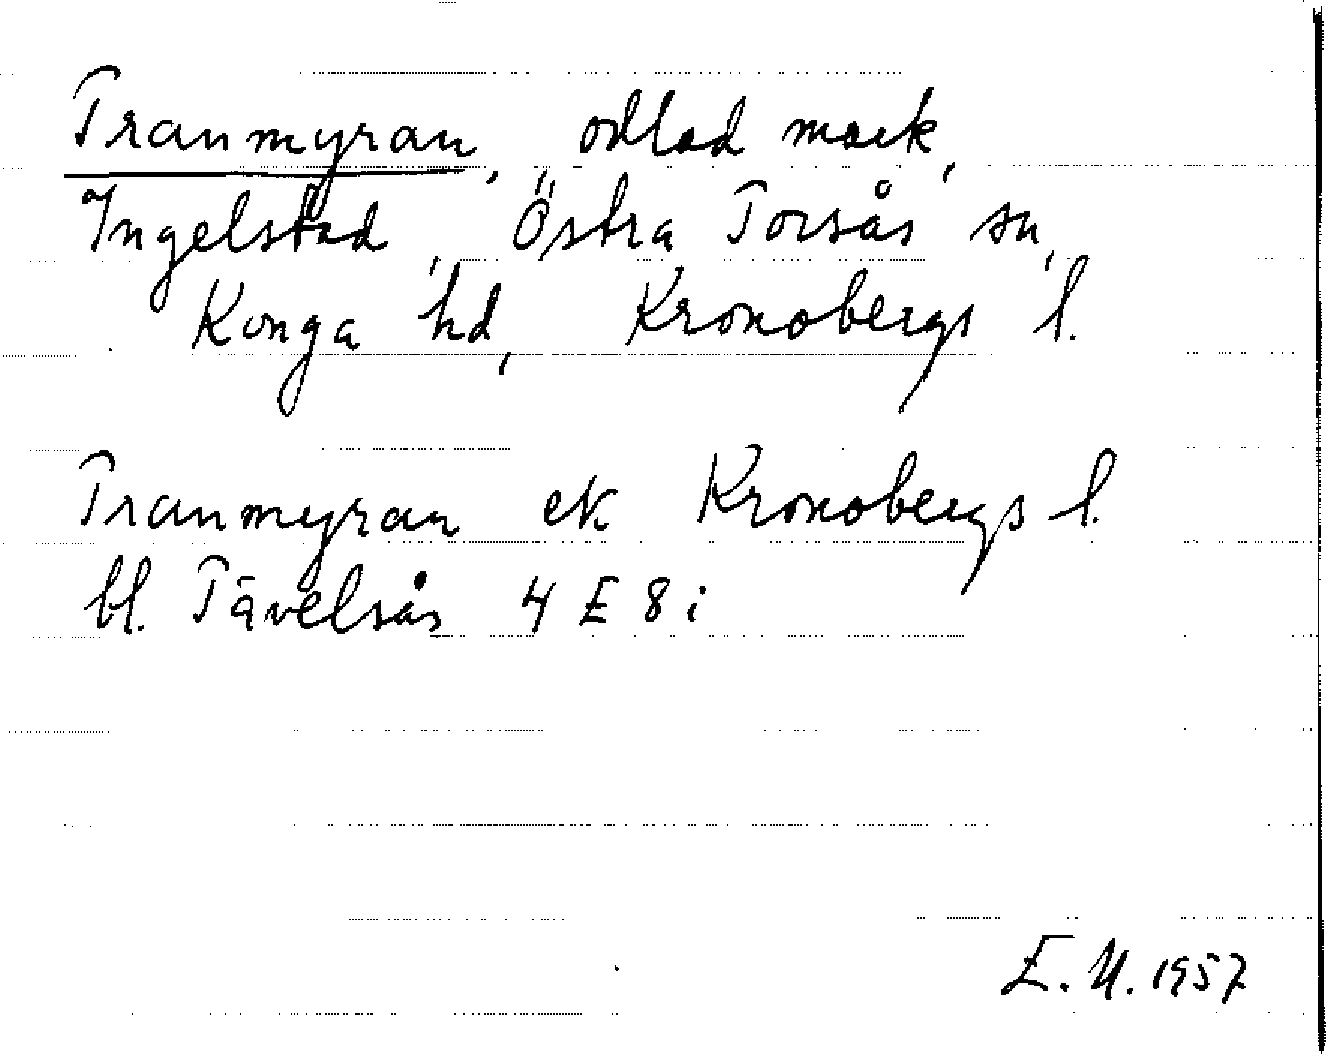 Tranmyran, odlad mark,
Ingelstad, Östra Torsås sn,
Konga hd, Kronobergs l.
Tranmyran ek. Kronobergs l.
bl. Tävelsås 4 E 8 i
E. U. 1957